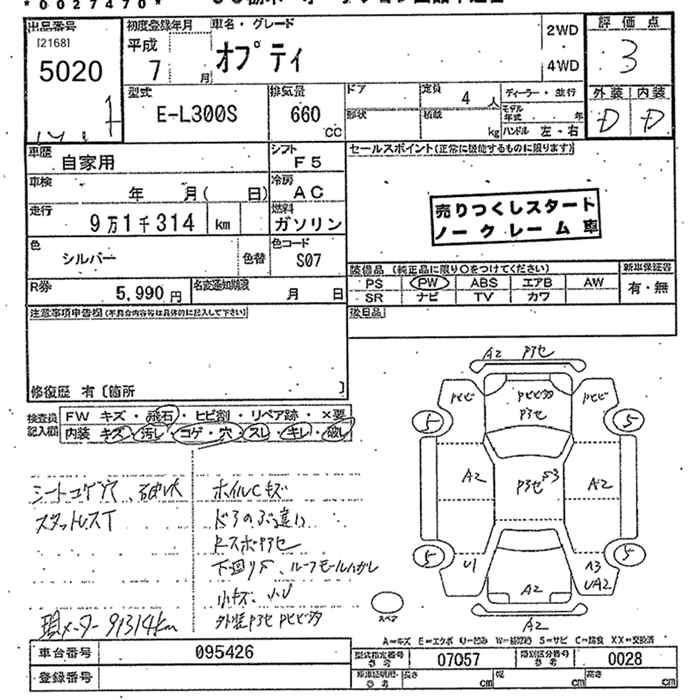 *0027470*
出品番号 初度登録年月 車名・グレード 評価点
[2168] 平成 オプティ 2WD 3
5020 7 月 4WD
型式 排気量 ドア 定員 4 人 ディーラー・並行 外装 内装
E-L300S 660 CC 形状 積載 kg モデル年式 年 D D
ハンドル 左・右
車歴 自家用 シフト F5 セールスポイント(正常に機能するものに限ります)
車検 年 月( 日) 冷房 AC
走行 9万1千314 km 燃料 ガソリン 売りつくしスタート
ノークレーム車
色 シルバー 色替 色コード S07
装備品 (純正品に限り○をつけてください) 新車保証書
R券 5,990円 名変通知期限 月 日 PS PW ABS エアB AW 有・無
SR ナビ TV カワ
注意事項申告欄(不具合内容等は具体的に記入して下さい) 後日品
修復歴 有〔箇所 〕
検査員記入欄 FW キズ・飛石・ヒビ割・リペア跡・×要
内装 キズ・汚レ・コゲ・穴・スレ・キレ・破レ
A2 P3セ
Pヒビ P3セ Pヒビ
5 5
A2 P3セ A2
5 5
U1 A3 UA2
A2
A2
シートコゲ穴 ホイルCキズ
スタッドレスT ドアのぶ違い
RスポP3セ
下回りS ルーフモールハガレ
小キズ 小U
現メーター 91314km 外装P3セ Pヒビ
スペア
A=キズ E=エクボ U=凹み W=補修跡 S=サビ C=腐食 XX=交換済
車台番号 095426 型式指定番号 参考 07057 類別区分番号 参考 0028
登録番号 車庫証明用・参考 長さ cm 幅 cm 高さ cm